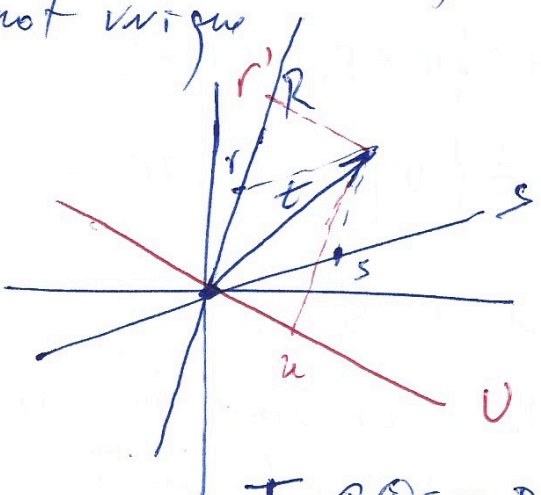 not unique
r'
R
r
t
S
s
u
U